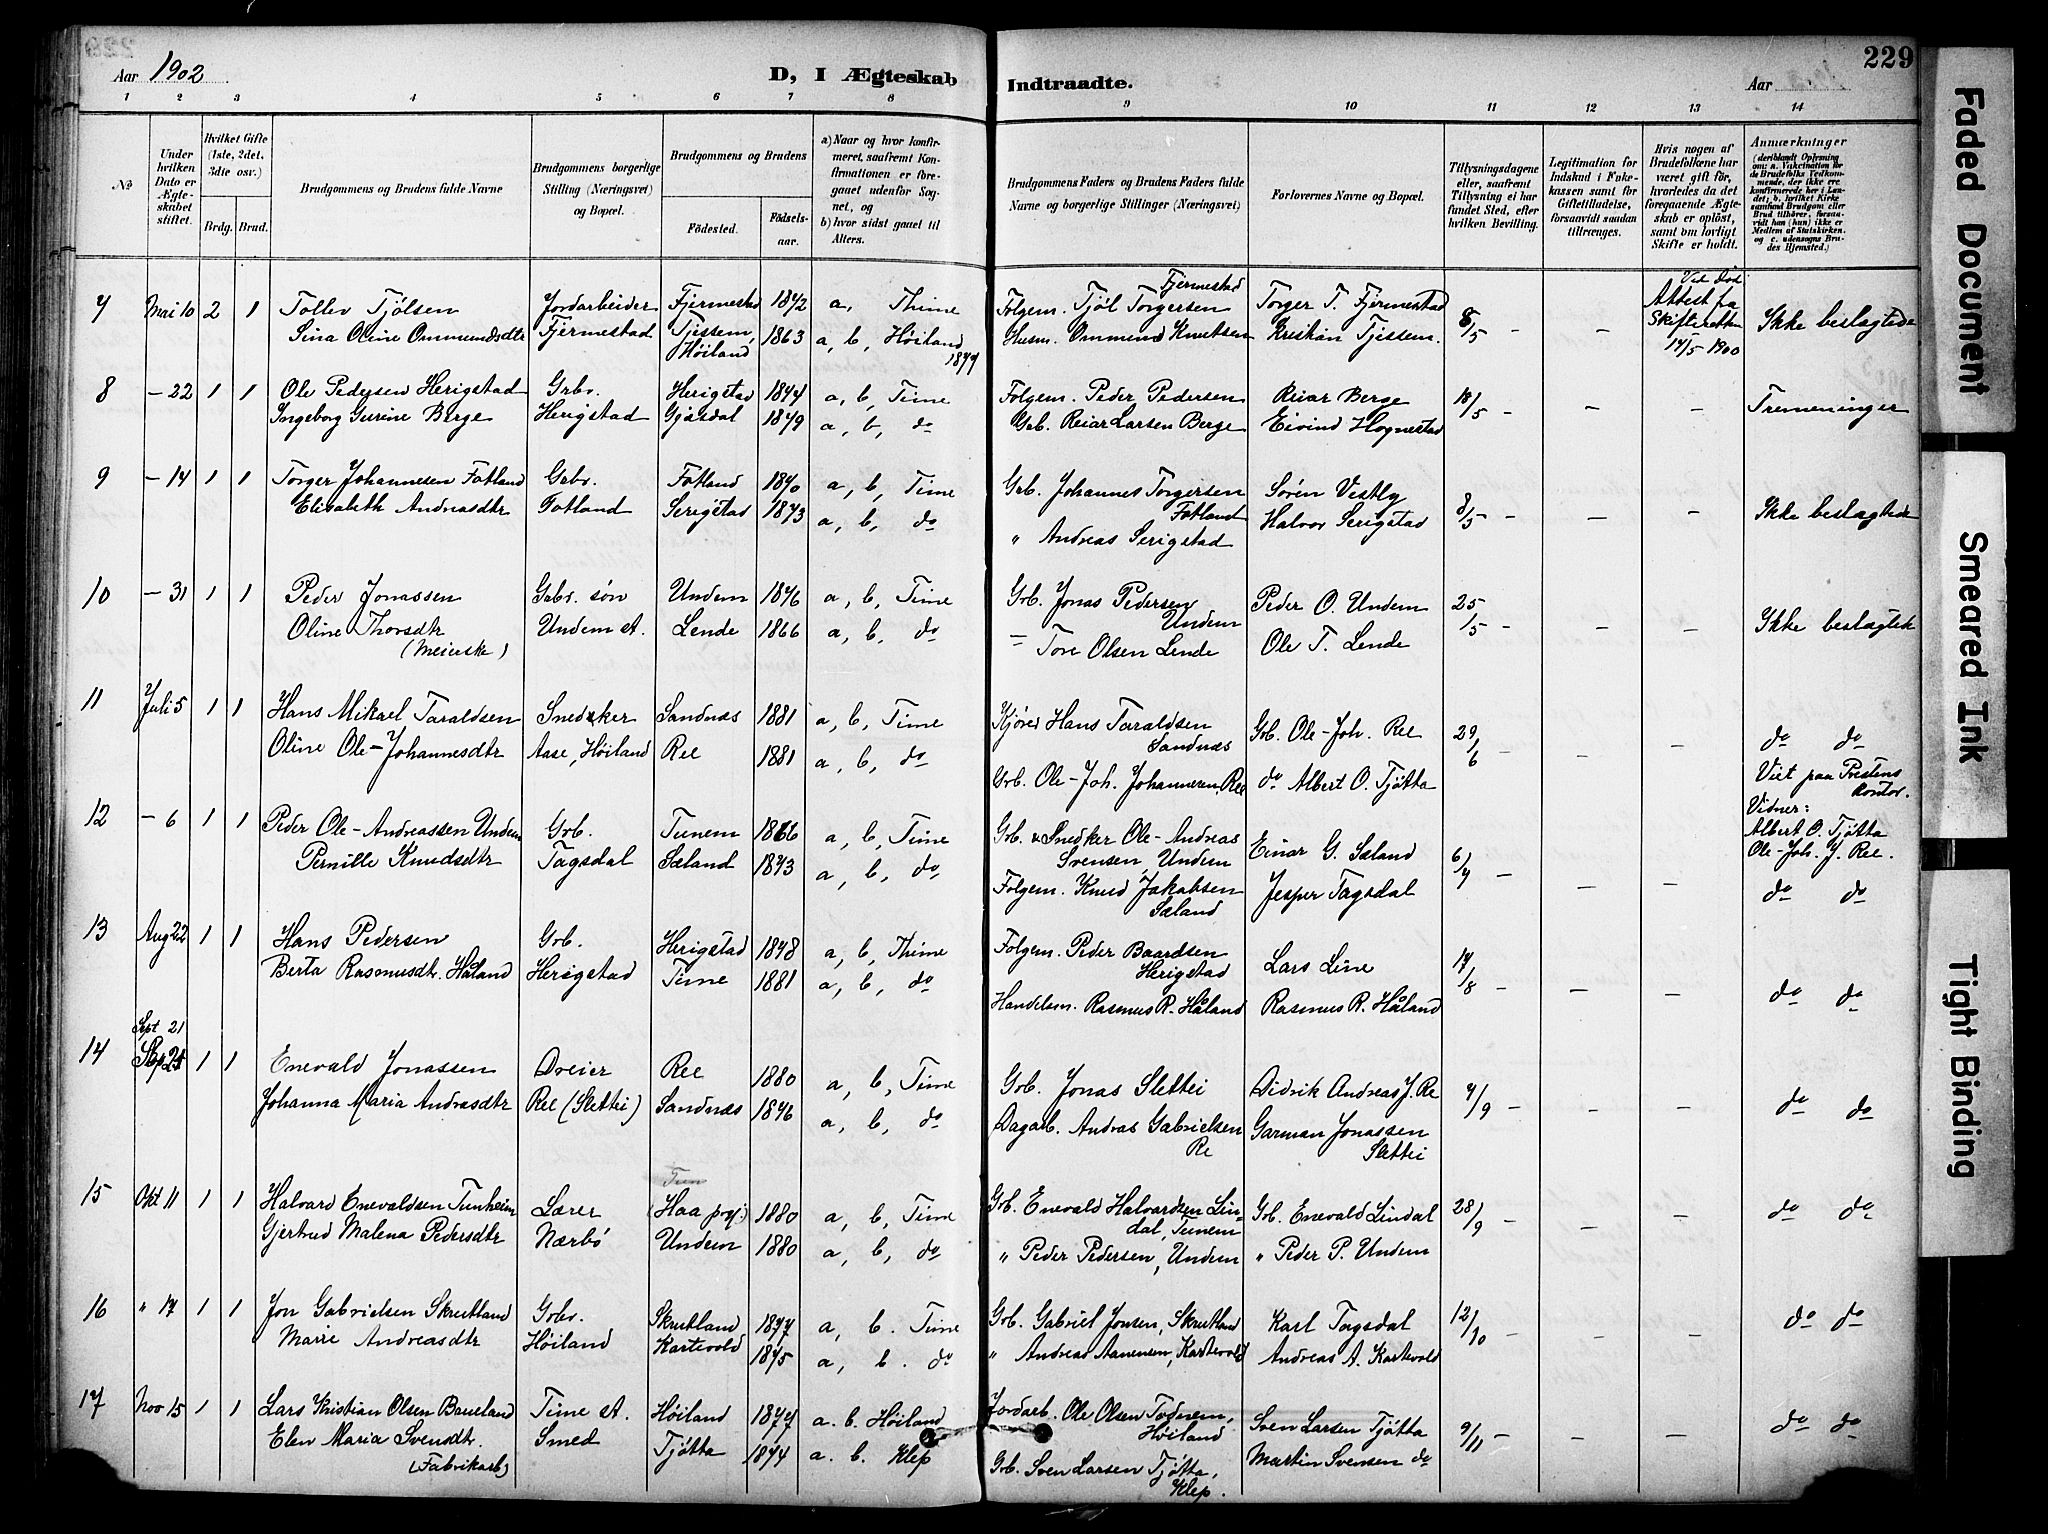 229
Aar 1902
D, I Ægteskab Indtraadte.
Aar
1 2 3 4 5 6 7 8 9 10 11 12 13 14
№
Under hvilken Dato er Ægteskabet stiftet.
Hvilket Gifte (1ste, 2det, 3die osv.)
Brdg. Brud.
Brudgommens og Brudens fulde Navne
Brudgommens borgerlige Stilling (Næringsvei) og Bopæl.
Brudgommens og Brudens
Fødested. Fødselsaar.
a) Naar og hvor konfirmeret, saafremt Konfirmationen er foregaaet udenfor Sognet, og
b) hvor sidst gaaet til Alters.
Brudgommens Faders og Brudens Faders fulde Navne og borgerlige Stillinger (Næringsvei)
Forlovernes Navne og Bopæl.
Tillysningsdagene eller, saafremt Tillysning ei har fundet Sted, efter hvilken Bevilling.
Legitimation for Indskud i Enkekassen samt for Giftetilladelse, forsaavidt saadan tiltrænges.
Hvis nogen af Brudefolkene har været gift før, hvorledes da det foregaaende Ægteskab er opløst, samt om lovligt Skifte er holdt.
Anmærkninger
(deriblandt Oplysning om: a. Vakcination for de Brudefolks Vedkommende, der ikke ere konfirmerede her i Landet; b. hvilket Kirkesamfund Brudgom eller Brud tilhører, forsaavidt han (hun) ikke er Medlem af Statskirken, og c. udensogns Brudes Hjemsted.)
7 Mai 10 2 1 Tollev Tjølsen Jordarbeider Fjermestad 1872 a, Thime Folgem. Tjøl Torgersen Fjermestad Torger T. Fjermestad 8/5 – – Ved død Attest fra Skifteretten 17/5 1900 Ikke beslagtede
Sina Oline Ommundsdtr Fjermestad Tjessem, Høiland 1863 a, b, Høiland 1877 Husm. Ommund Knutsen Kristian Tjessem.
8 – 22 1 1 Ole Pedersen Herigstad Grbr. Herigstad 1874 a, b, Time Folgem. Peder Pedersen Reiar Berge 18/5 – – – Tremeninger
Ingeborg Gurine Berge Herigstad Gjæsdal 1879 a, b, do Grb. Reiar Larsen Berge Eivind Hognestad
9 – 14 1 1 Torger Johannesen Fotland Grbr. Fotland 1870 a, b, Time Grb. Johannes Torgersen Fotland Søren Vestly 8/5 – – – Ikke beslagtede
Elisabeth Andreasdtr Fotland Serigstad 1873 a, b, do " Andreas Serigstad Halvor Serigstad
10 – 31 1 1 Peder Jonassen Gabr. søn Undem 1876 a, b, Time Grb. Jonas Pedersen Undem Peder O. Undem 25/5 – – Ikke beslagtede
Oline Thorsdtr (Meierske) Undem st. Lende 1866 a, b, do – Tore Olsen Lende Ole T. Lende
11 Juli 5 1 1 Hans Mikael Taraldsen Snedker Sandnæs 1881 a, b, Time Kjører Hans Taraldsen Sandnæs Grb. Ole-Joh. Ree 29/6 – – do do
Oline Ole-Johannesdtr Aase, Høiland Ree 1881 a, b, do Grb. Ole-Joh. Johannesen, Ree do Albert O. Tjøtta Viet paa Prestens Kontor. Vidner: Albert O. Tjøtta Ole-Joh. J. Ree.
12 – 6 1 1 Peder Ole-Andreassen Undem Grb. Tunem 1866 a, b, Time Grb. & Snedker Ole-Andreas Svensen, Undem Einar G. Sæland 6/7 – – – do do
Pernille Knudsdtr Tagsdal Sæland 1873 a, b, do, Folgem. Knud Jakobsen Sæland Jesper Tagsdal
13 Aug 22 1 1 Hans Pedersen Grb. Herigstad 1878 a, b, Thime Folgem. Peder Baardsen Herigstad Lars Line 17/8 – – – do do
Berta Rasmusdtr. Håland Herigstad Time 1881 a, b, do Handelsm. Rasmus R. Håland Rasmus R. Håland
14 Sept 21 1 1 Enevald Jonassen Dreier Ree 1880 a, b, Time Grb. Jonas Slettei Didrik Andreas J. Re 7/9 – – – do do
Johanna Maria Andreasdtr Ree (Slettei) Sandnæs 1876 a, b, do Dagarb. Andras Gabrielsen Re Garman Jonassen Slettei
15 Okt 11 1 1 Halvard Enevaldsen Tunheim Lærer (Haa prgj.) 1880 a, b, Time Grb. Enevald Halvardsen Lindal, Tunem Grb. Enevald Lindal 28/9 – – – do do
Gjertrud Malena Pedersdtr Nærbø Undem 1880 a, b, do " Peder Pedersen, Undem " Peder P. Undem
16 " 17 1 1 Jon Gabrielsen Skrutland Grbr. Skrutland 1877 a, b. Time Grb. Gabriel Jonsen, Skrutland Karl Tagsdal 12/10 – – – do do
Marie Andreasdtr Høiland Kartevold 1875 a, b. do " Andreas Aanensen, Kartevold Andreas A. Kartevold
17 Nov 15 1 1 Lars Kristian Olsen Baueland Time st. Høiland 1877 a. b. Høiland Jordarb. Ole Olsen Todnem, Høiland Sven Larsen Tjøtta 9/11 – – – do do
Elen Maria Svensdtr. (Fabrikarb) Smed Tjøtta 1874 a. b. Klep Grb. Sven Larsen Tjøtta, Klep. Martin Svensen do
Faded Document
Smeared Ink
Tight Binding